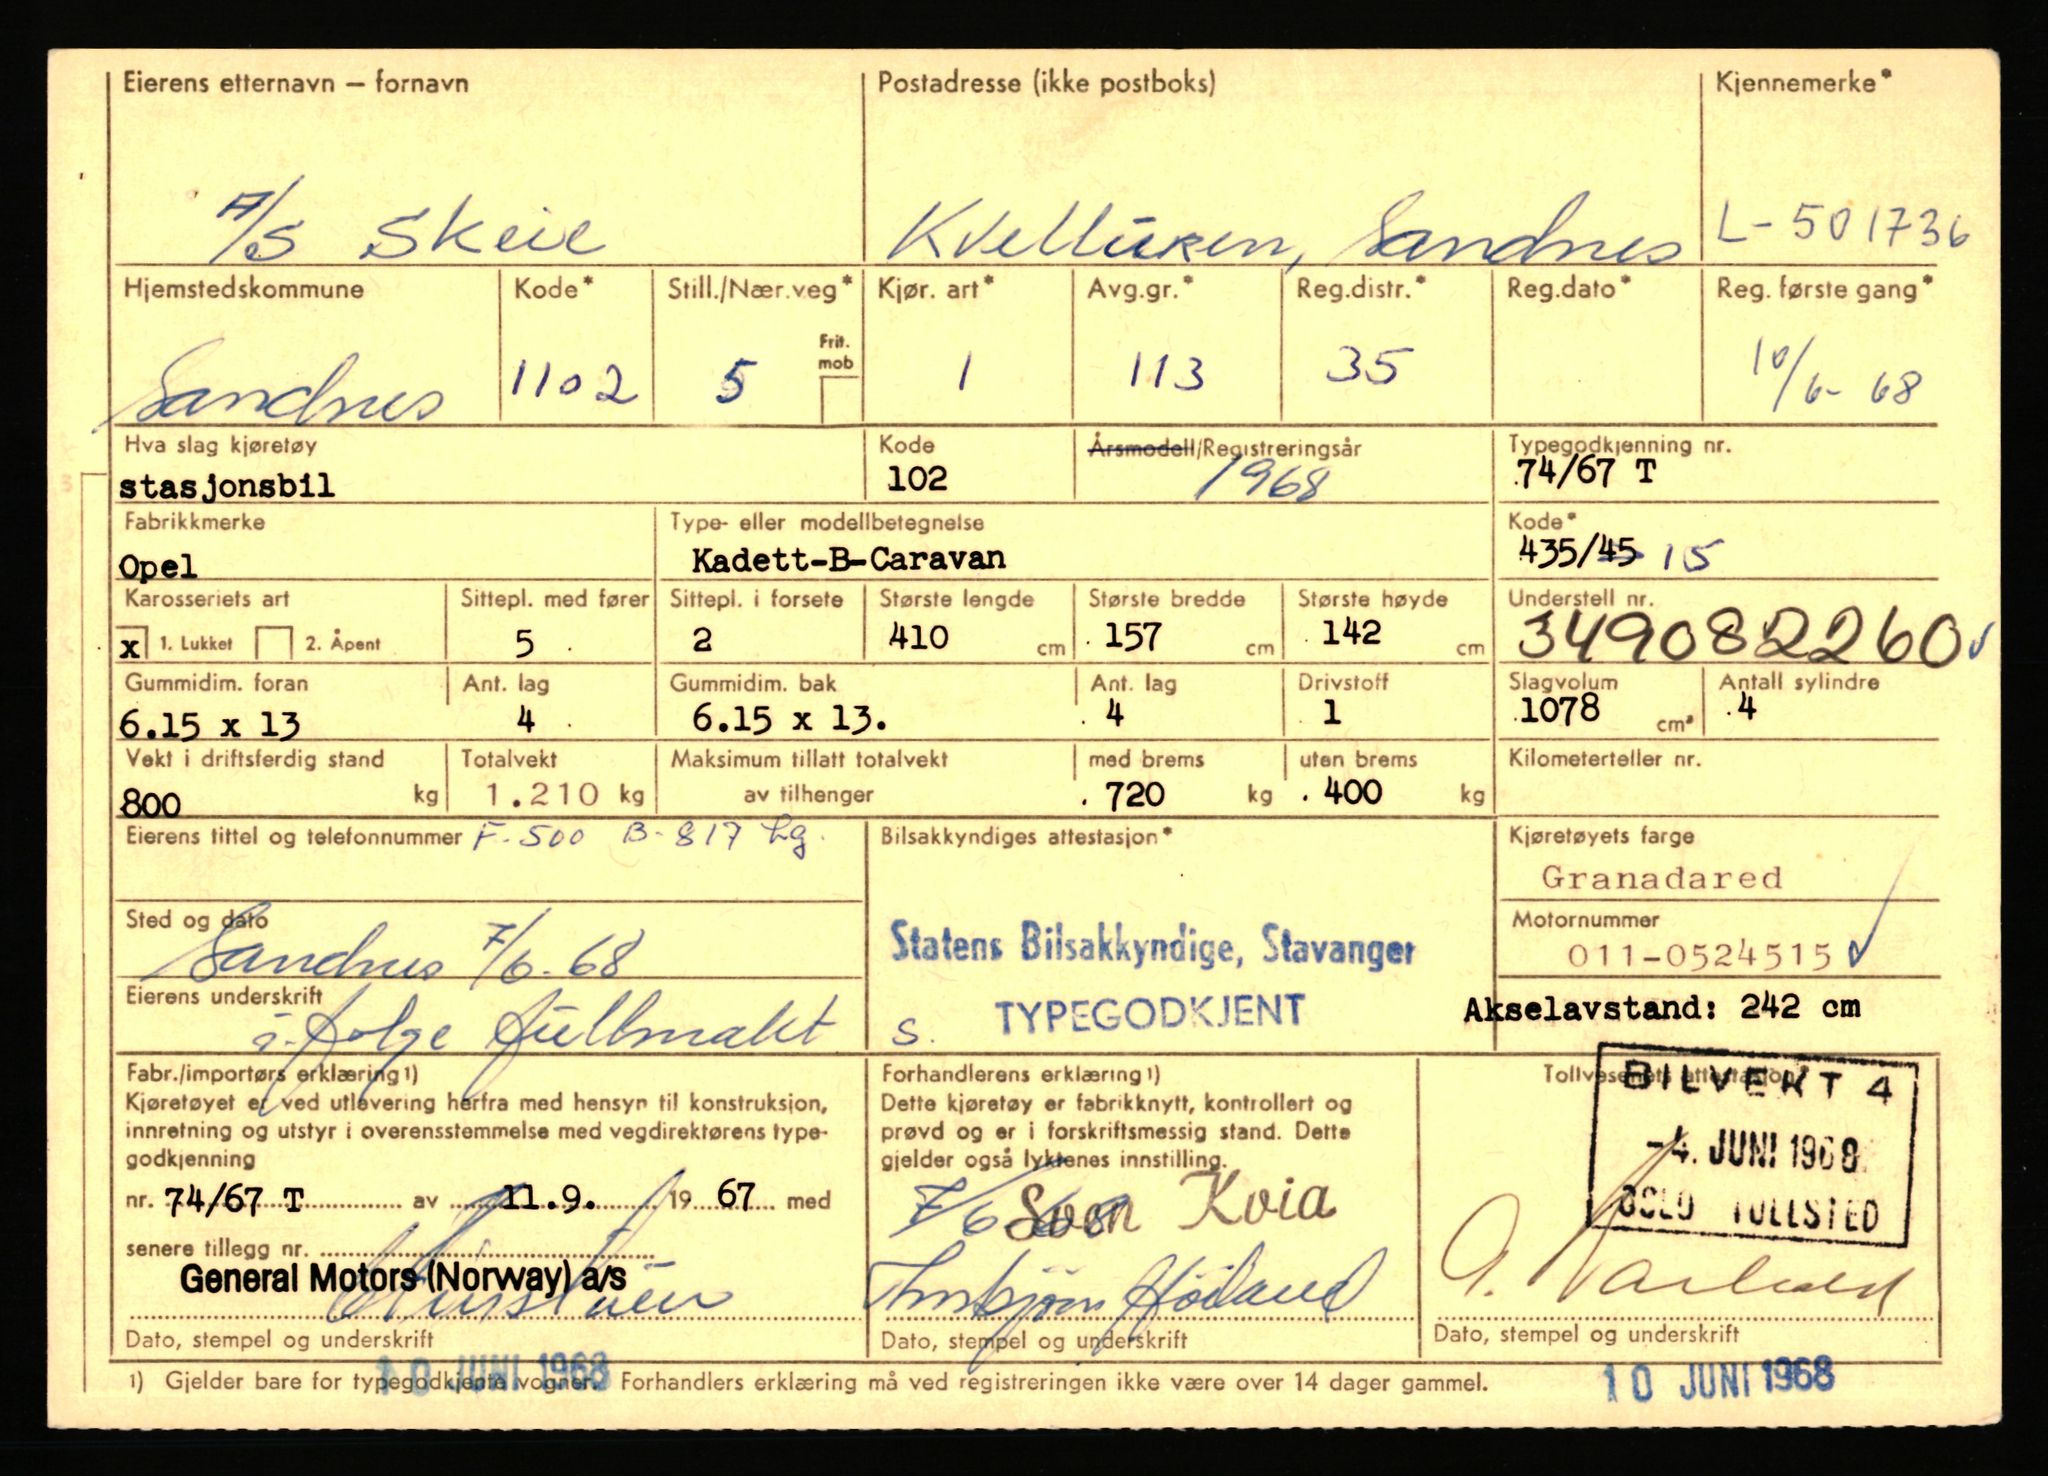 Eierens etternavn – fornavn Postadresse (ikke postboks) Kjennemerke*
A/S Skeie Kvelluren, Sandnes L-501736
Hjemstedskommune Kode* Still./Nær.veg* Kjør. art* Avg.gr.* Reg.distr.* Reg.dato* Reg. første gang*
Frit. mob
Sandnes 1102 5 1 113 35 10/6-68
Hva slag kjøretøy Kode Årsmodell/Registreringsår Typegodkjenning nr.
stasjonsbil 102 1968 74/67 T
Fabrikkmerke Type- eller modellbetegnelse Kode*
Opel Kadett-B-Caravan 435/45 15
Karosseriets art Sittepl. med fører Sittepl. i forsete Største lengde Største bredde Største høyde Understell nr.
x 1. Lukket 2. Åpent 5 2 410 cm 157 cm 142 cm 349082260
Gummidim. foran Ant. lag Gummidim. bak Ant. lag Drivstoff Slagvolum Antall sylindre
6.15 x 13 4 6.15 x 13. 4 1 1078 cm³ 4
Vekt i driftsferdig stand Totalvekt Maksimum tillatt totalvekt med brems uten brems Kilometerteller nr.
800 kg 1.210 kg av tilhenger 720 kg 400 kg
Eierens tittel og telefonnummer F-500 B-817 kg. Bilsakkyndiges attestasjon* Kjøretøyets farge
Granadared
Sted og dato Motornummer
Sandnes 7/6-68 Statens Bilsakkyndige, Stavanger 011-0524515
Eierens underskrift TYPEGODKJENT Akselavstand: 242 cm
i følge fullmakt S.
Fabr./importørs erklæring 1) Forhandlerens erklæring 1) Tollvesenets attestasjon*
Kjøretøyet er ved utlevering herfra med hensyn til konstruksjon, Dette kjøretøy er fabrikknytt, kontrollert og BILVEKT 4
innretning og utstyr i overensstemmelse med vegdirektørens type- prøvd og er i forskriftsmessig stand. Dette -4. JUNI 1968
godkjenning gjelder også lyktenes innstilling.
nr. 74/67 T av 11.9. 19 67 med 7/6 68 Sven Kvia OSLO TOLLSTED
senere tillegg nr.
General Motors (Norway) a/s Torbjørn Høiland
Dato, stempel og underskrift Dato, stempel og underskrift Dato, stempel og underskrift
10 JUNI 1968 10 JUNI 1968
1) Gjelder bare for typegodkjente vogner. Forhandlers erklæring må ved registreringen ikke være over 14 dager gammel.